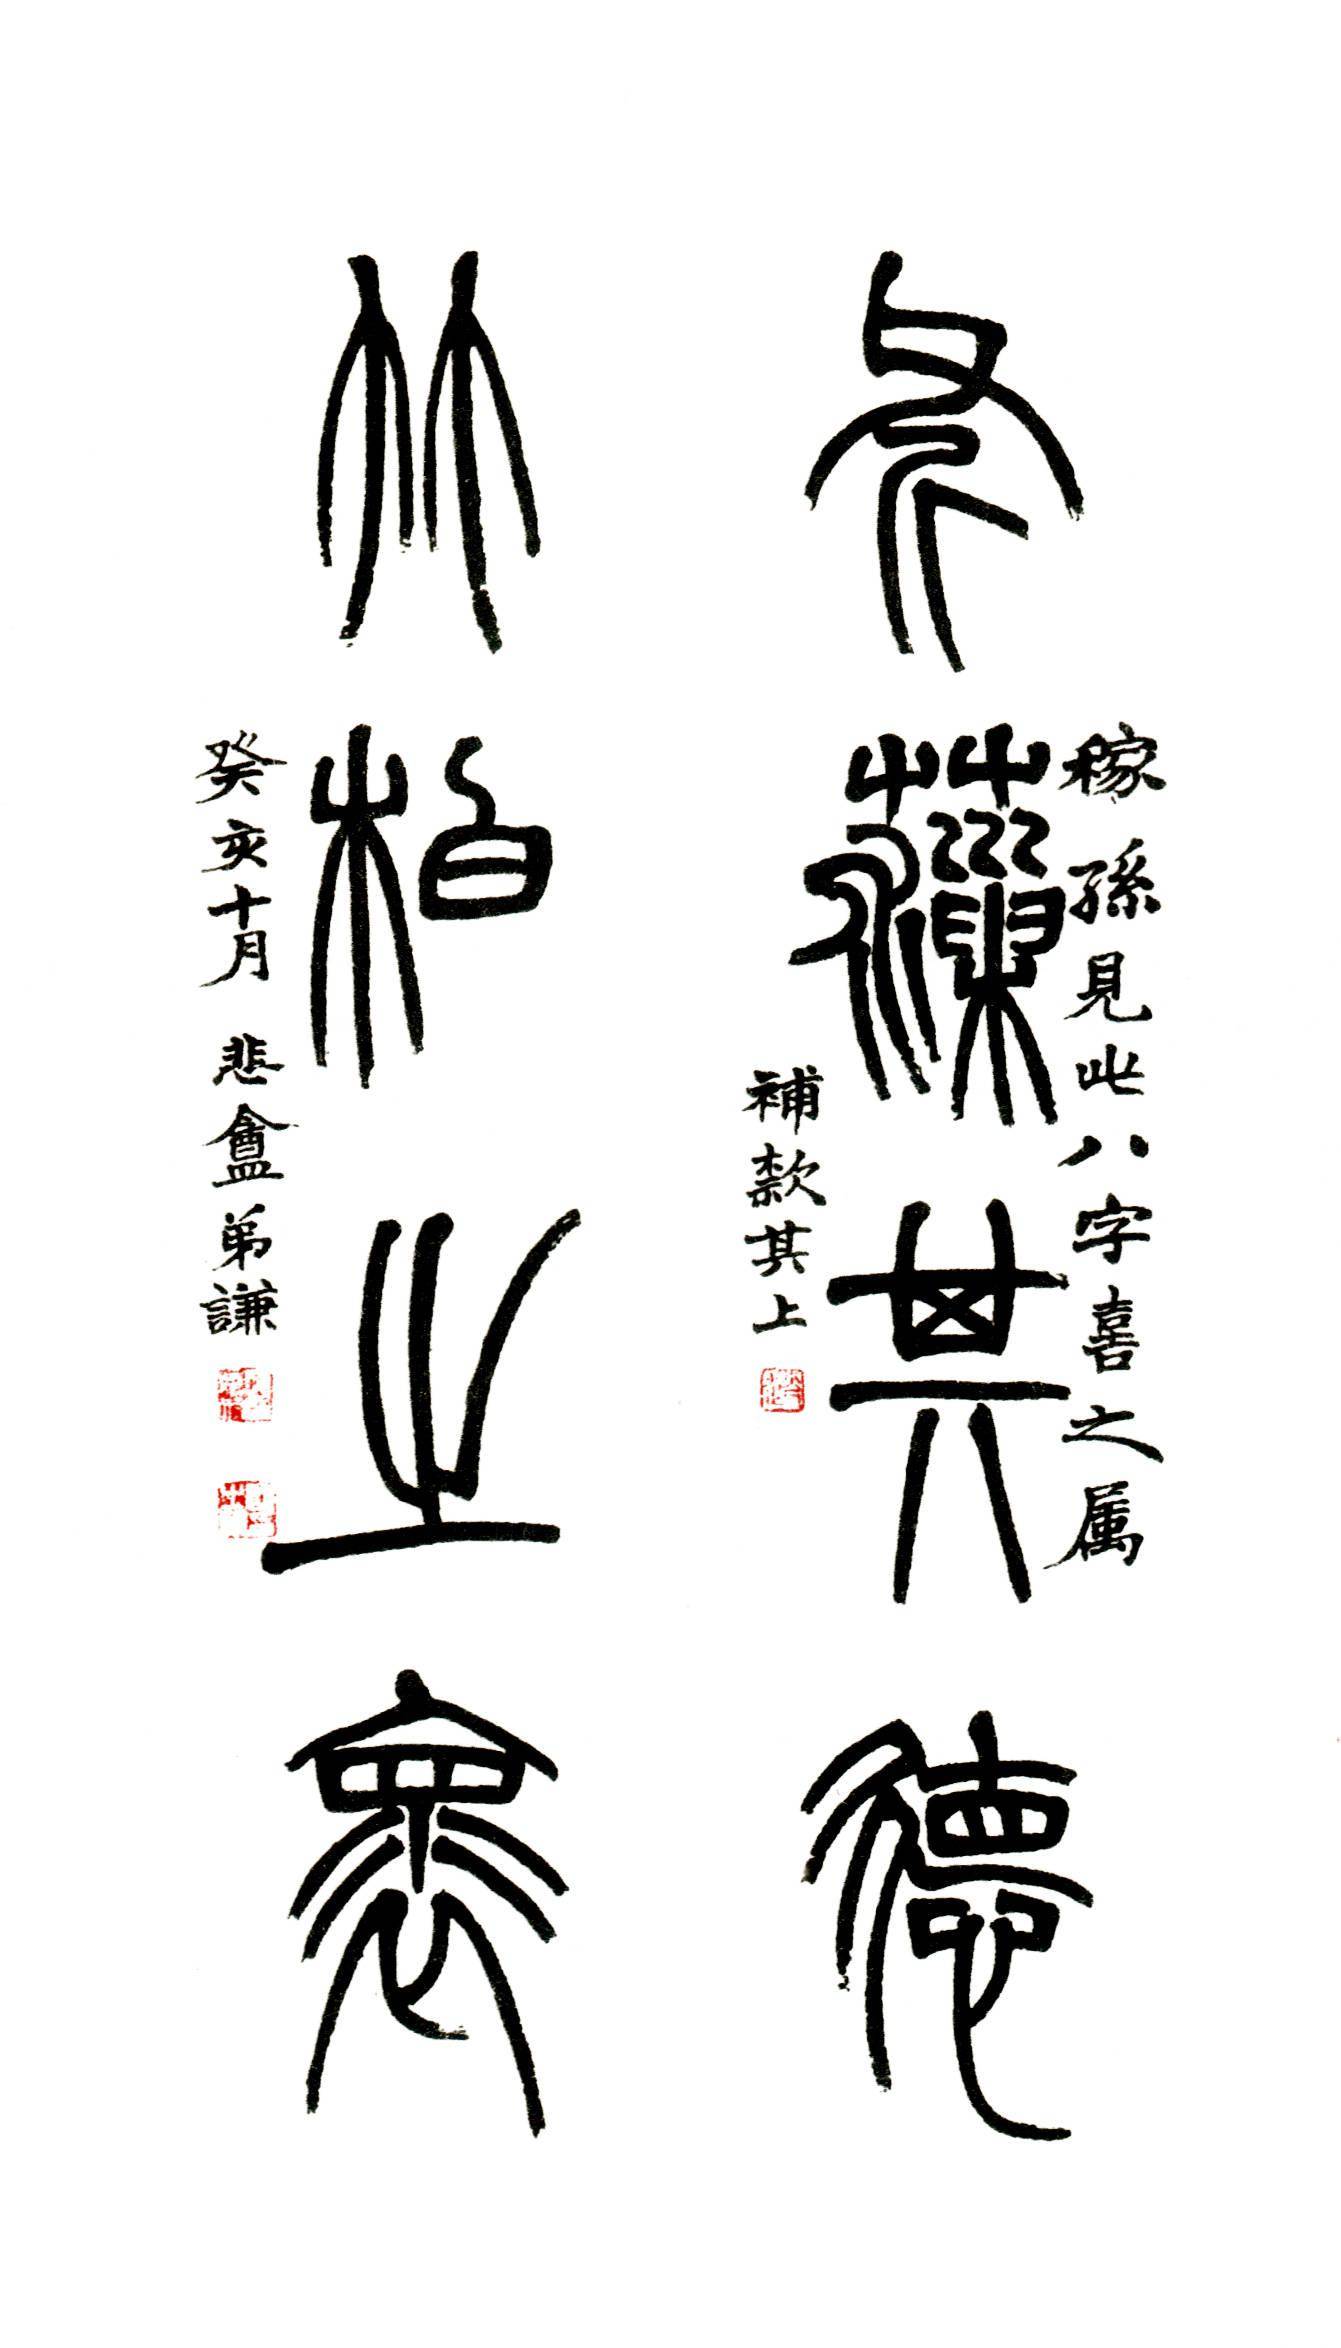 稼孫見此八字喜之属
其德
補款其上
竹柏之褱
癸亥十月 悲盦弟謙